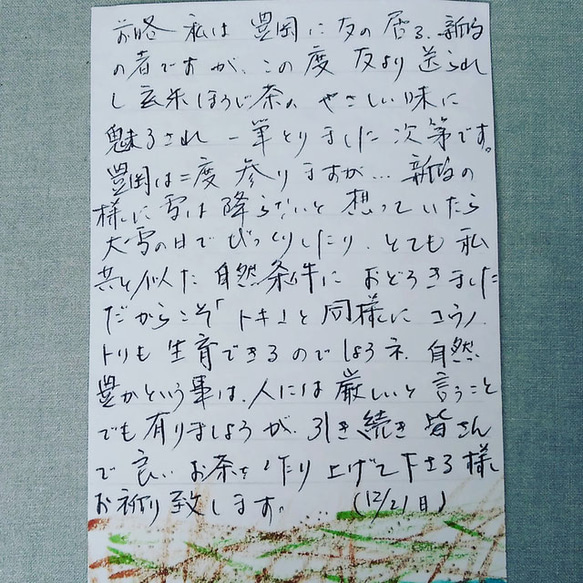 前略 私は 豊岡に 友の 居る、新潟
の者ですが、この度 友より 送られ
し 玄米ほうじ茶の やさしい味に
魅了され 一筆とりました 次第です。
豊岡は二度 参りますが… 新潟の
様に雪は 降らないと 想っていたら
大雪の日で びっくりしたり、とても 私
共と似た 自然条件に おどろきました
だからこそ「トキ」と 同様に コウノ
トリも 生育できるのでしょうネ、自然
豊かという事は、人には 厳しいと 言うこと
でも 有りましょうが、引き続き 皆さん
で 良い お茶を 作り上げて下さる様
お祈り致します。 (12/21日)